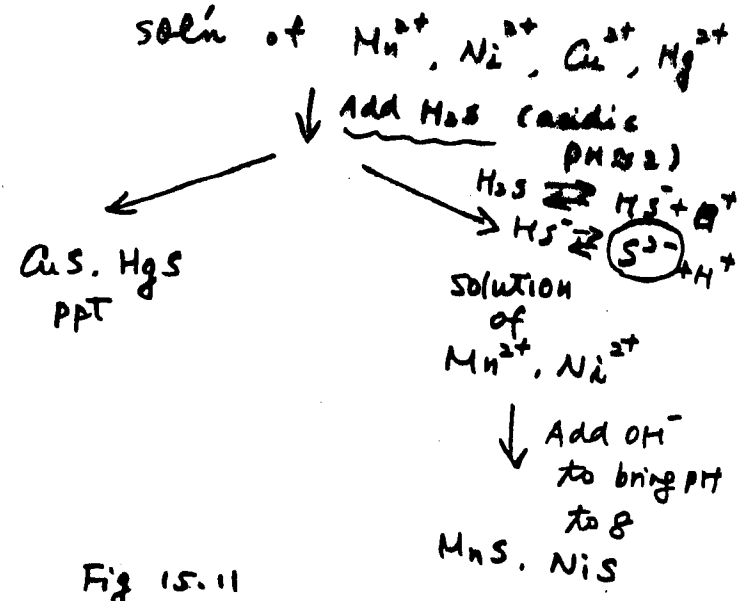 sol'n of Mn²⁺, Ni²⁺, Cu²⁺, Hg²⁺
Add H₂S (acidic
pH≈2)
H₂S ⇌ HS⁻ + H⁺
HS⁻ ⇌ S²⁻ + H⁺
CuS. HgS
ppT
solution
of
Mn²⁺. Ni²⁺
Add OH⁻
to bring pH
to 8
MnS. NiS
Fig 15.11